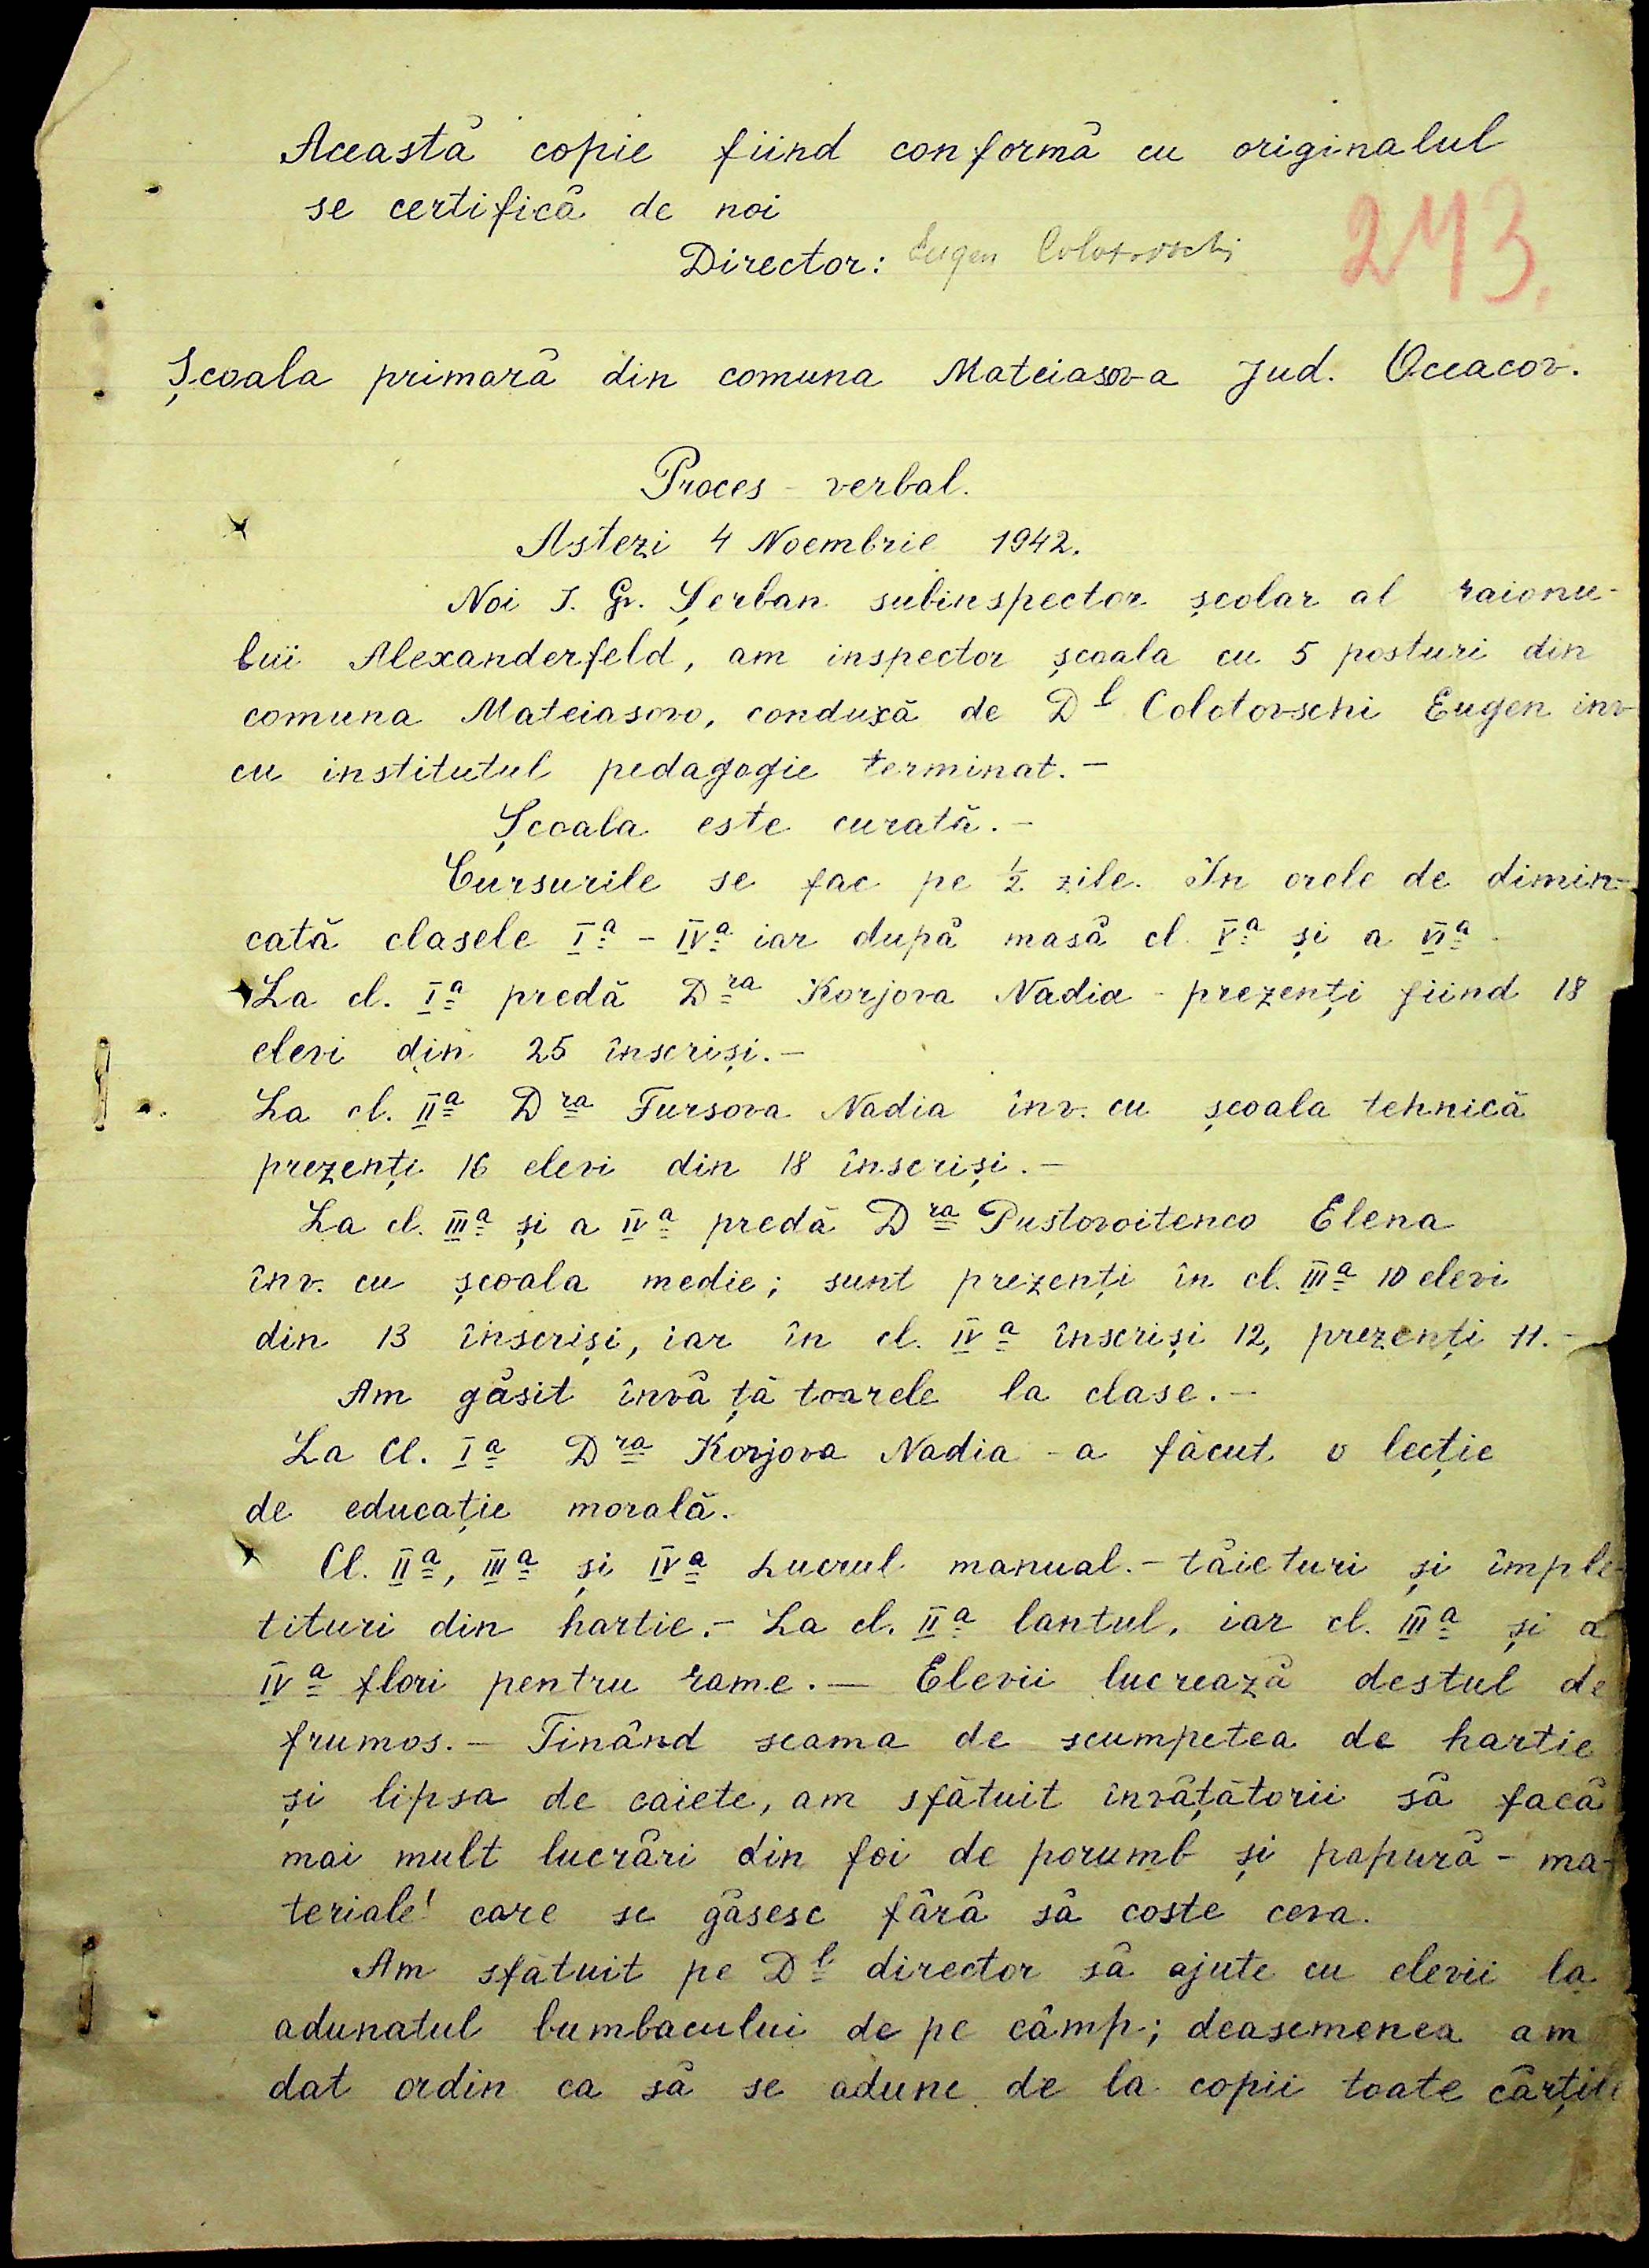 Această copie fiind conformă cu originalul
se certifică de noi
Director: Eugen Colotovschi
243.
Școala primară din comuna Mateiasova Jud. Oceacov.
Proces - verbal.
Astezi 4 Noembrie 1942.
Noi I. Gr. Șerban subinspector școlar al raionu-
lui Alexanderfeld, am inspector școala cu 5 posturi din
comuna Mateiasovo, condusă de Dl Colotovschi Eugen inv
cu institutul pedagogic terminat. -
Școala este curată. -
Cursurile se fac pe 1/2 zile. In orele de dimin-
eată clasele Ia - IVa iar după masă cl. Va și a VIa -
La cl. Ia predă Dra Korjova Nadia - prezenți fiind 18
elevi din 25 înscriși. -
La cl. IIa Dra Fursova Nadia înv. cu școala tehnică
prezenți 16 elevi din 18 înscriși. -
La cl. IIIa și a IVa predă Dra Pustovoitenco Elena
înv. cu școala medie; sunt prezenți în cl. IIIa 10 elevi
din 13 înscriși, iar în cl. IVa înscriși 12, prezenți 11. -
Am găsit învă ță toarele la clase. -
La Cl. Ia Dra Korjova Nadia - a făcut o lecție
de educație morală.
Cl. IIa, IIIa și IVa Lucrul manual. - tăieturi și împle-
tituri din hartie. - La cl. IIa lantul, iar cl. IIIa și a
IVa flori pentru rame. - Elevii lucrează destul de
frumos. - Tinând seama de scumpetea de hartie
și lipsa de caiete, am sfătuit învățătorii să facă
mai mult lucrări din foi de porumb și papură - ma-
teriale! care se găsesc fără să coste ceva.
Am sfătuit pe Dl director să ajute cu elevii la
adunatul bumbacului de pe câmp; deasemenea am
dat ordin ca să se adune de la copii toate cărțile